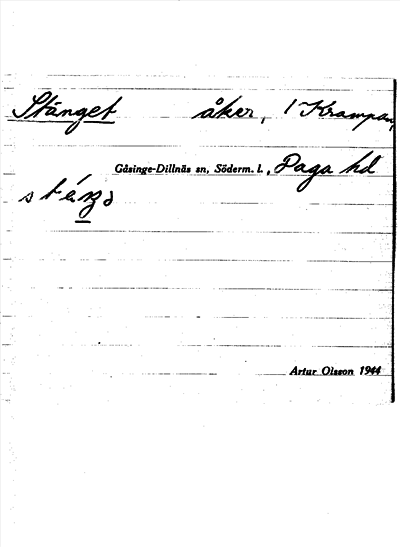 Stänget åker, 1 Krampan,
Gåsinge-Dillnäs sn, Söderm. l., Daga hd
Artur Olsson 1944